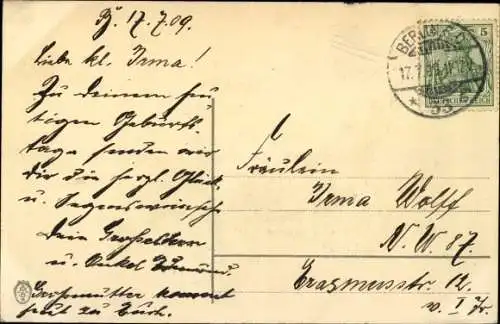 B. 17.7.09.
Liebe kl. Irma!
Zu deinem heu-
tigen Geburts-
tage senden wir
dir die herzl. Glück
u. Segenswünsche
Dein Großeltern
u. Onkel
Großmutter kommt
heut zu Euch.
BERLIN
17.7.09
* 55
5
DEUTSCHES REICH
Fräulein
Irma Wolff
N. W. 87.
Erasmusstr. 12.
v. I Tr.